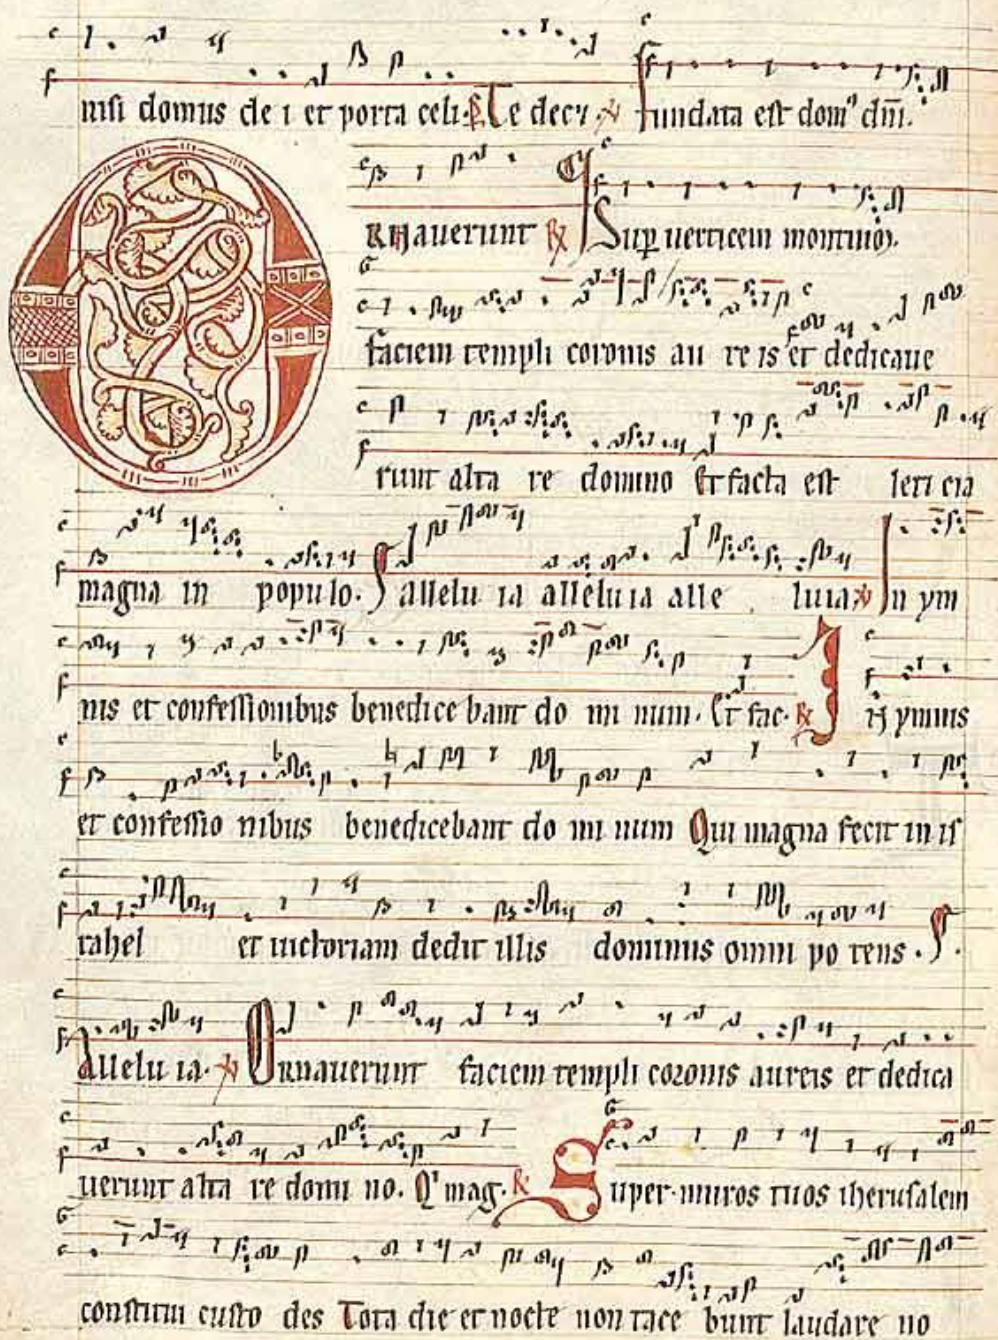 nisi domus de i et porta celi. Te decz. fundata est dom⁹ dñi.
ORNaverunt Sup verticem montium.
faciem templi coronis au re is et dedicave
runt alta re domino Et facta est leticia
magna in populo. alleluia alleluia alle luia In ym
nis et confessionibus benedice bant do mi num. Et fac. IN ymnis
et confessio nibus benedicebant do mi num Qui magna fecit in is
rahel et victoriam dedit illis dominus omni po tens.
Allelu ia. ORnaverunt faciem templi coronis aureis et dedica
verunt alta re domi no. Q' mag. Super muros tuos iherusalem
constitui custo des Tota die et nocte non tace bunt laudare no